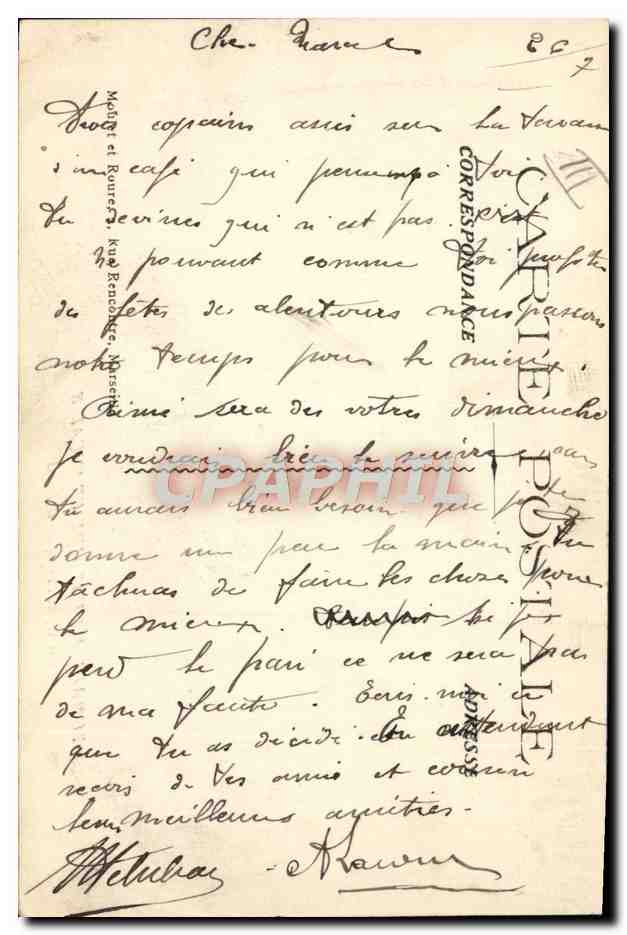 Cher Marcel 26/7
Deux copains assis sur la terrasse
d'un café qui pensent à toi
tu devines qui n'est pas
Ne pouvant comme toi profiter
des fêtes des alentours nous passons
notre temps pour le mieux.
Aimé sera des votres dimanche
je voudrais bien le suivre car
tu aurais bien besoin que je te
donne un peu la main. Tu
tâcheras de faire les choses pour
le mieux. Si je
perd le pari ce ne sera pas
de ma faute. Ecris-moi ce
que tu as décidé. En attendant
recois de tes amis et cousin
leurs meilleures amitiés.
CARTE POSTALE
CORRESPONDANCE
ADRESSE
Moullet et Roure, Rue Rencontre, Marseille
CPAPHIL